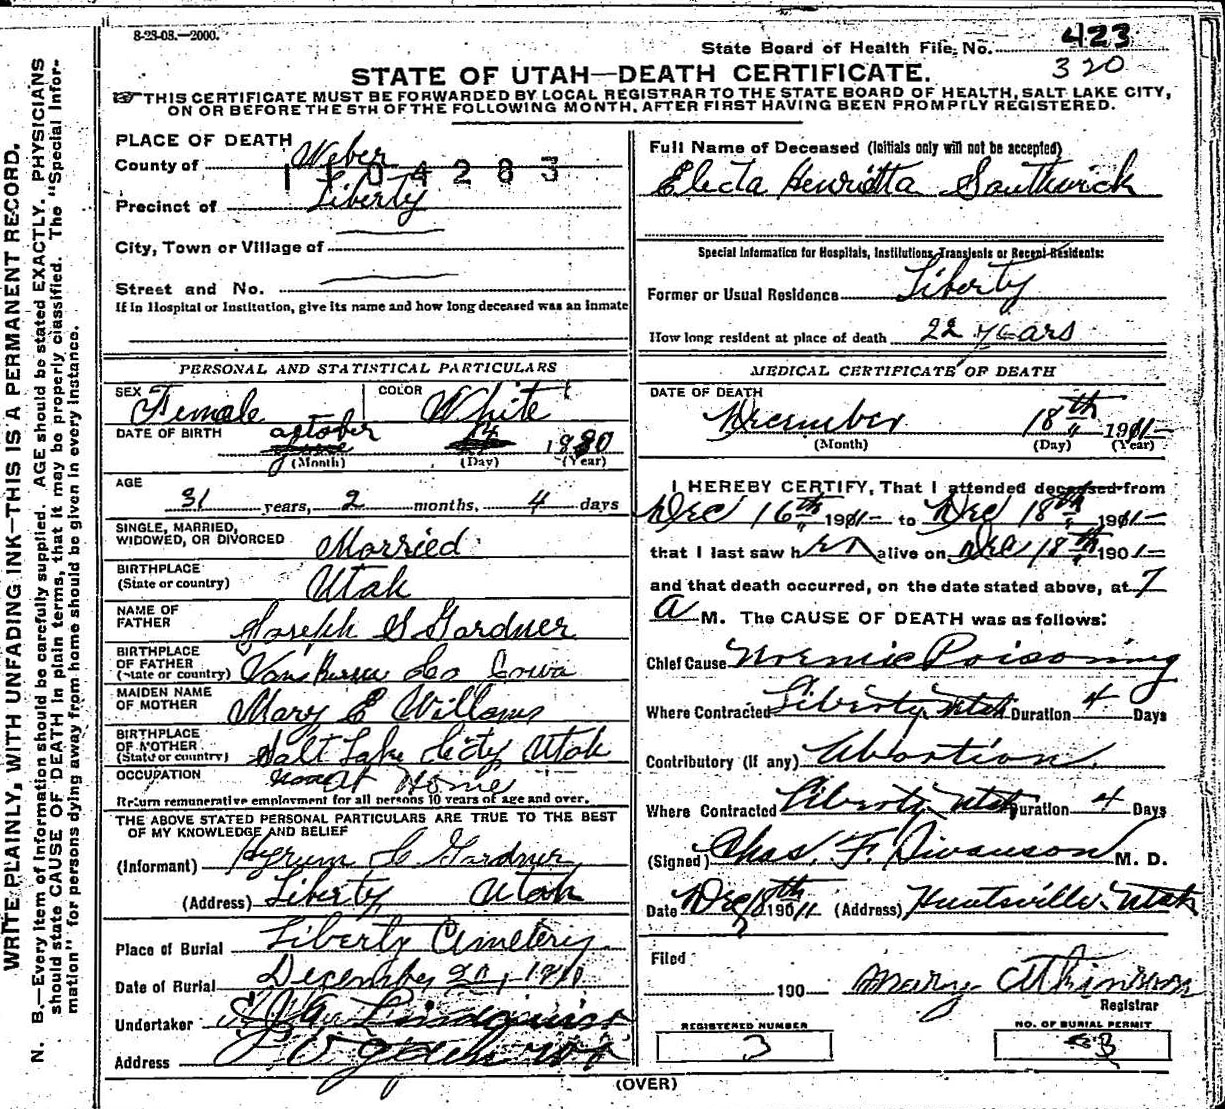 8-28-08.—2000.
State Board of Health File No. 423
320
STATE OF UTAH—DEATH CERTIFICATE.
☞ THIS CERTIFICATE MUST BE FORWARDED BY LOCAL REGISTRAR TO THE STATE BOARD OF HEALTH, SALT LAKE CITY,
ON OR BEFORE THE 5TH OF THE FOLLOWING MONTH, AFTER FIRST HAVING BEEN PROMPTLY REGISTERED.
WRITE PLAINLY, WITH UNFADING INK—THIS IS A PERMANENT RECORD.
N. B.—Every item of information should be carefully supplied. AGE should be stated EXACTLY. PHYSICIANS
should state CAUSE OF DEATH in plain terms, that it may be properly classified. The "Special Infor-
mation" for persons dying away from home should be given in every instance.
PLACE OF DEATH
County of Weber
1104283
Precinct of Liberty
City, Town or Village of
Street and No.
If in Hospital or Institution, give its name and how long deceased was an inmate
PERSONAL AND STATISTICAL PARTICULARS
SEX Female COLOR White
DATE OF BIRTH October 14 1880
(Month) (Day) (Year)
AGE
31 years, 2 months, 4 days
SINGLE, MARRIED,
WIDOWED, OR DIVORCED Married
BIRTHPLACE
(State or country) Utah
NAME OF
FATHER Joseph S Gardner
BIRTHPLACE
OF FATHER
(State or country) Van Buren Co Iowa
MAIDEN NAME
OF MOTHER Mary E
BIRTHPLACE
OF MOTHER
(State or country) Salt Lake City Utah
OCCUPATION at Home
Return remunerative employment for all persons 10 years of age and over.
THE ABOVE STATED PERSONAL PARTICULARS ARE TRUE TO THE BEST
OF MY KNOWLEDGE AND BELIEF
(Informant) Hyrum C Gardner
(Address) Liberty Utah
Place of Burial Liberty Cemetery
Date of Burial December 20, 1911
Undertaker
Address Ogden
Full Name of Deceased (Initials only will not be accepted)
Electa Henrietta Southwick
Special Information for Hospitals, Institutions, Transients or Recent Residents:
Former or Usual Residence Liberty
How long resident at place of death 22 years
MEDICAL CERTIFICATE OF DEATH
DATE OF DEATH
December 18th 1911
(Month) (Day) (Year)
I HEREBY CERTIFY, That I attended deceased from
Dec 16th 1911 to Dec 18th 1911
that I last saw her alive on Dec 18th 1901
and that death occurred, on the date stated above, at 7
a M. The CAUSE OF DEATH was as follows:
Chief Cause Uremic Poisoning
Where Contracted Liberty Utah Duration 4 Days
Contributory (If any) Abortion
Where Contracted Liberty Utah Duration 4 Days
(Signed) Chas. F. Swanson M. D.
Date Dec 18th 1911 (Address) Huntsville Utah
Filed
190 Mary Atkinson
Registrar
REGISTERED NUMBER
3
NO. OF BURIAL PERMIT
(OVER)